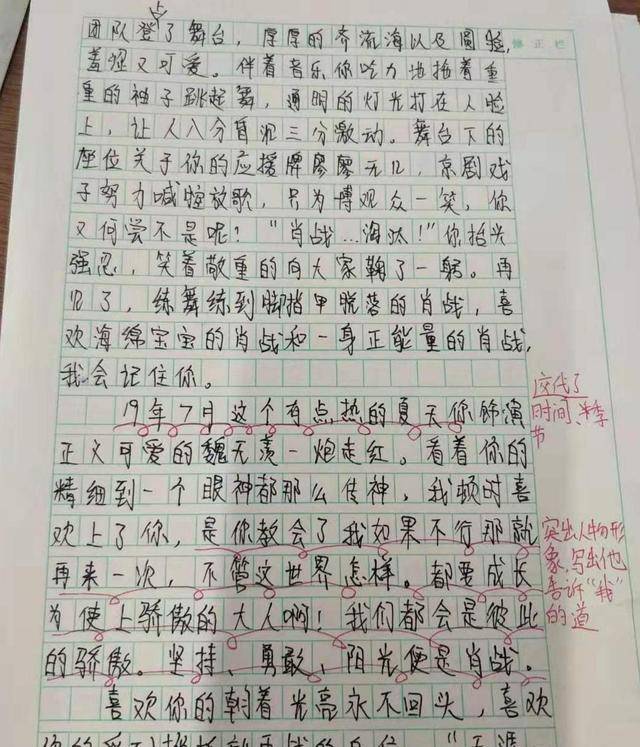 团队登上了舞台，厚厚的齐流海以及圆脸，
修正栏
羞怪又可爱。伴着音乐你吃力地抬着重
重的袖子跳起舞，通明的灯光打在人脸
上，让人八分自沉三分激动。舞台下的
座位关于你的应援牌廖廖无几，京剧戏
子努力喊嗓放歌，只为博观众一笑，你
又何尝不是呢！“肖战…淘汰！”你抬头
强忍，笑着敬重的向大家鞠了一躬。再
见了，练舞练到脚指甲脱落的肖战，喜
欢海绵宝宝的肖战和一身正能量的肖战，
我会记住你。
19年7月这个有点热的夏天你饰演
正义可爱的魏无羡一炮走红。看着你的
精细到一个眼神都那么传神，我顿时喜
欢上了你，是你教会了我如果不行那就
再来一次，不管这世界怎样。都要成长
为使上骄傲的大人啊！我们都会是彼此
的骄傲。坚持、勇敢、阳光便是肖战。
喜欢你的朝着光亮永不回头，喜欢
交代了
时间、季
节
突出人物形
象，写出他
告诉“我”
的道